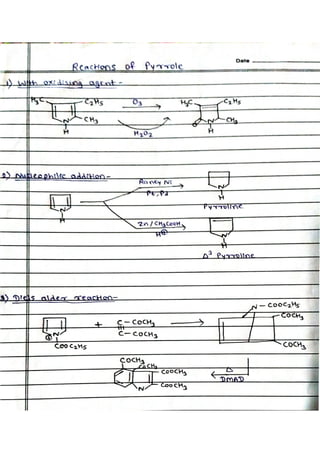 Date
Reactions of Pyrrole
1) With oxidising agent -
H₃C C₂H₅ O₃ H₃C C₂H₅
N CH₃ N CH₃
H H₂O₂ O H
2) Nucleophilic addition -
Raney Ni
N Pt, Pd N
H H
Pyrroline
Zn / CH₃COOH
H⊕ N
H
Δ³ Pyrroline
3) Diels alder reaction -
N - COOC₂H₅
C - COCH₃ COCH₃
N + ||| →
C - COCH₃
COOC₂H₅ COCH₃
COCH₃
COCH₃ COOCH₃ Δ
N COOCH₃ DMAD